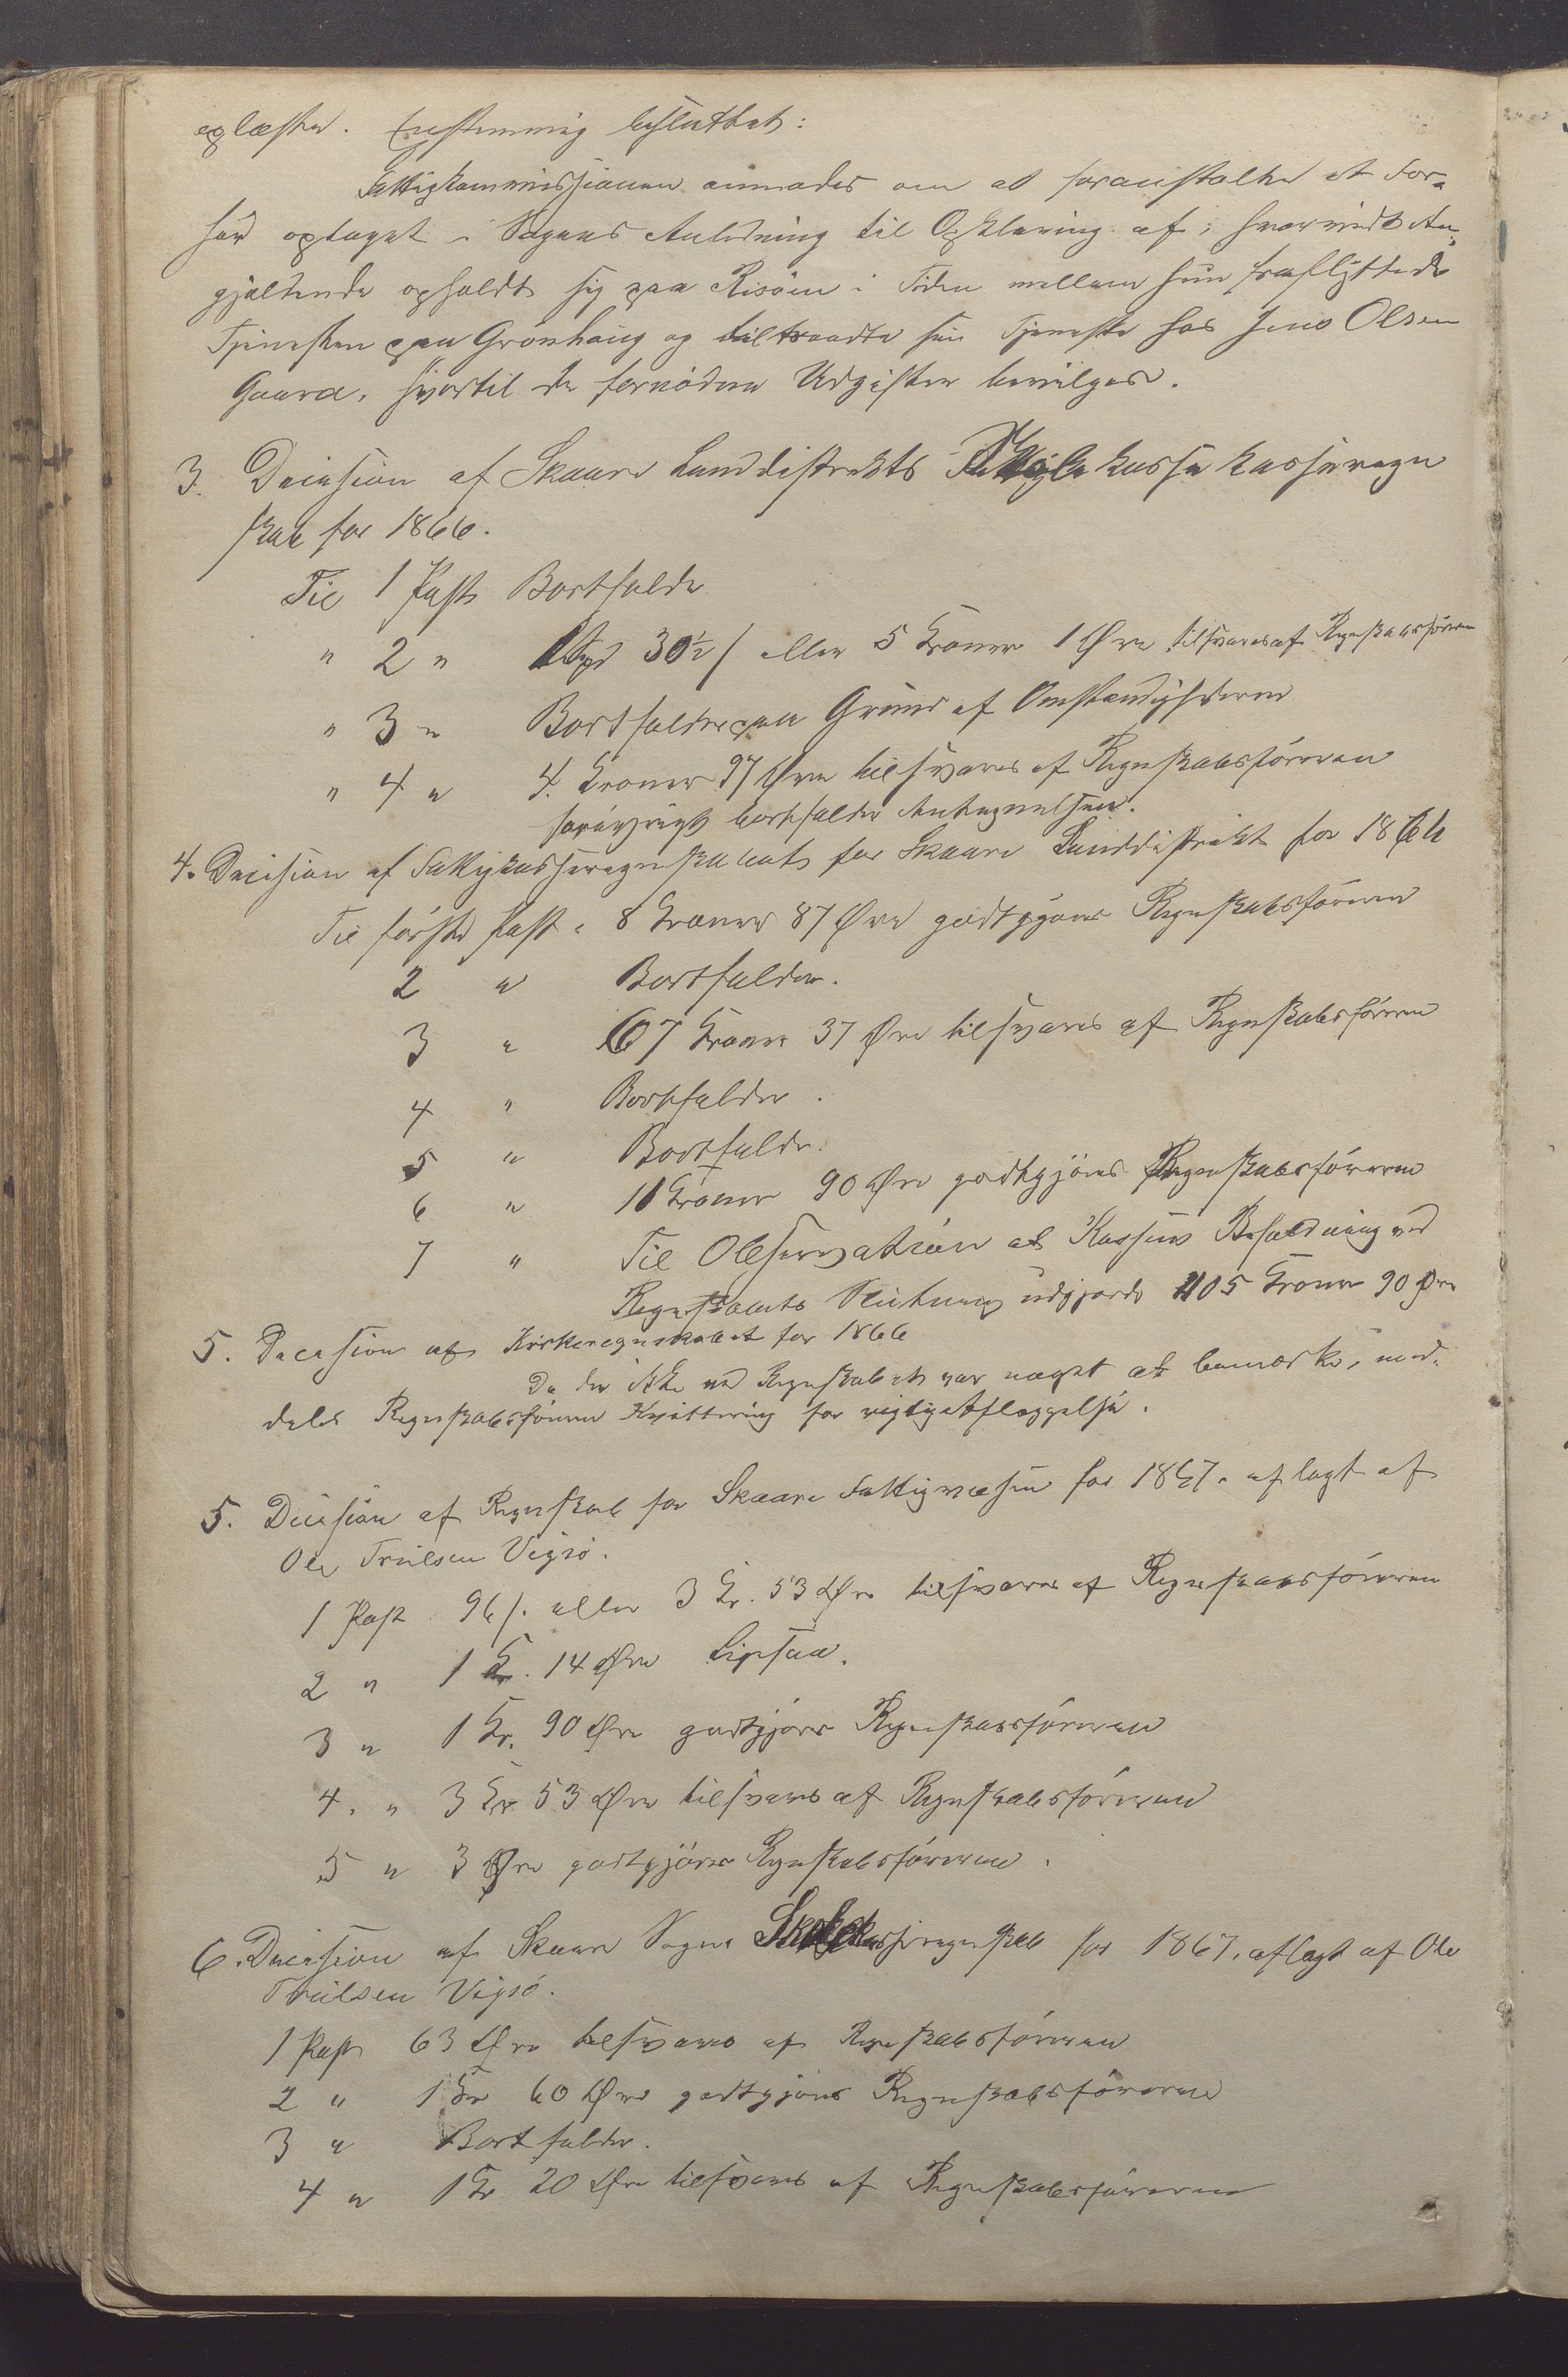 oplæstes. Enstemmig besluttet:
Fattigkommissionen anmodes om at foranstalte et For-
hør optaget i Sagens Anledning til Opklaring af, hvorvidt An-
gjældende opholdt sig paa Risöen i Tiden mellem hun fraflyttede
Tjenesten paa Grönhaug og tiltraadte sin Tjeneste hos Jens Olsen
Gaard, hvortil de fornödne Udgifter bevilges.
3. Decision af Skaare Landdistrikts Skolekasse kasseregn
skab for 1866.
Til 1 Post Bortfalder
" 2 " 1 Spd 30½ s eller 5 Kroner 1 Øre tilsvares af Regnskabsföreren
" 3 " Bortfalder paa Grund af Omstændighederne
" 4 " 4. Kroner 97 Øre tilsvares af Regnskabsföreren
forövrigt bortfalder Antegnelsen.
4. Decision af Fattigkasseregnskabet for Skaare Landdistrikt for 1866
Til förste Post. 8 Kroner 87 Øre godtgjöres Regnskabsföreren
2 " Bortfalder.
3 " 67 Kroner 37 Øre tilsvares af Regnskabsföreren
4 " Bortfalder.
5 " Bortfalder.
6 " 11 Kroner 90 Øre godtgjöres Regnskabsföreren
7 " Til Observation at Kassens Beholdning ved
Regnskabets Slutning udgjorde 105 Kroner 90 Øre
5. Decision af Kirkeregnskabet for 1866
Da der ikke ved Regnskabet var noget at bemærke, med-
deles Regnskabsföreren Kvittering for rigtig Aflæggelse.
5. Decision af Regnskab for Skaare Fattigvæsen for 1867. aflagt af
Ole Trulsen Vigsö.
1 Post 96 s. eller 3 Kr. 53 Øre tilsvares af Regnskabsföreren
2 " 1 Kr. 14 Øre ligesaa.
3 " 1 Kr. 90 Øre godtgjöres Regnskabsföreren
4. " 3 Kr 53 Øre tilsvares af Regnskabsföreren
5 " 3 Øre godtgjöres Regnskabsföreren.
6. Decision af Skaare Sogns Skolekasseregnskab for 1867, aflagt af Ole
Trulsen Vigsö.
1 Post 63 Øre tilsvares af Regnskabsföreren
2 " 1 Kr 60 Øre godtgjöres Regnskabsföreren
3 " Bortfalder.
4 " 1 Kr 20 Øre tilsvares af Regnskabsföreren